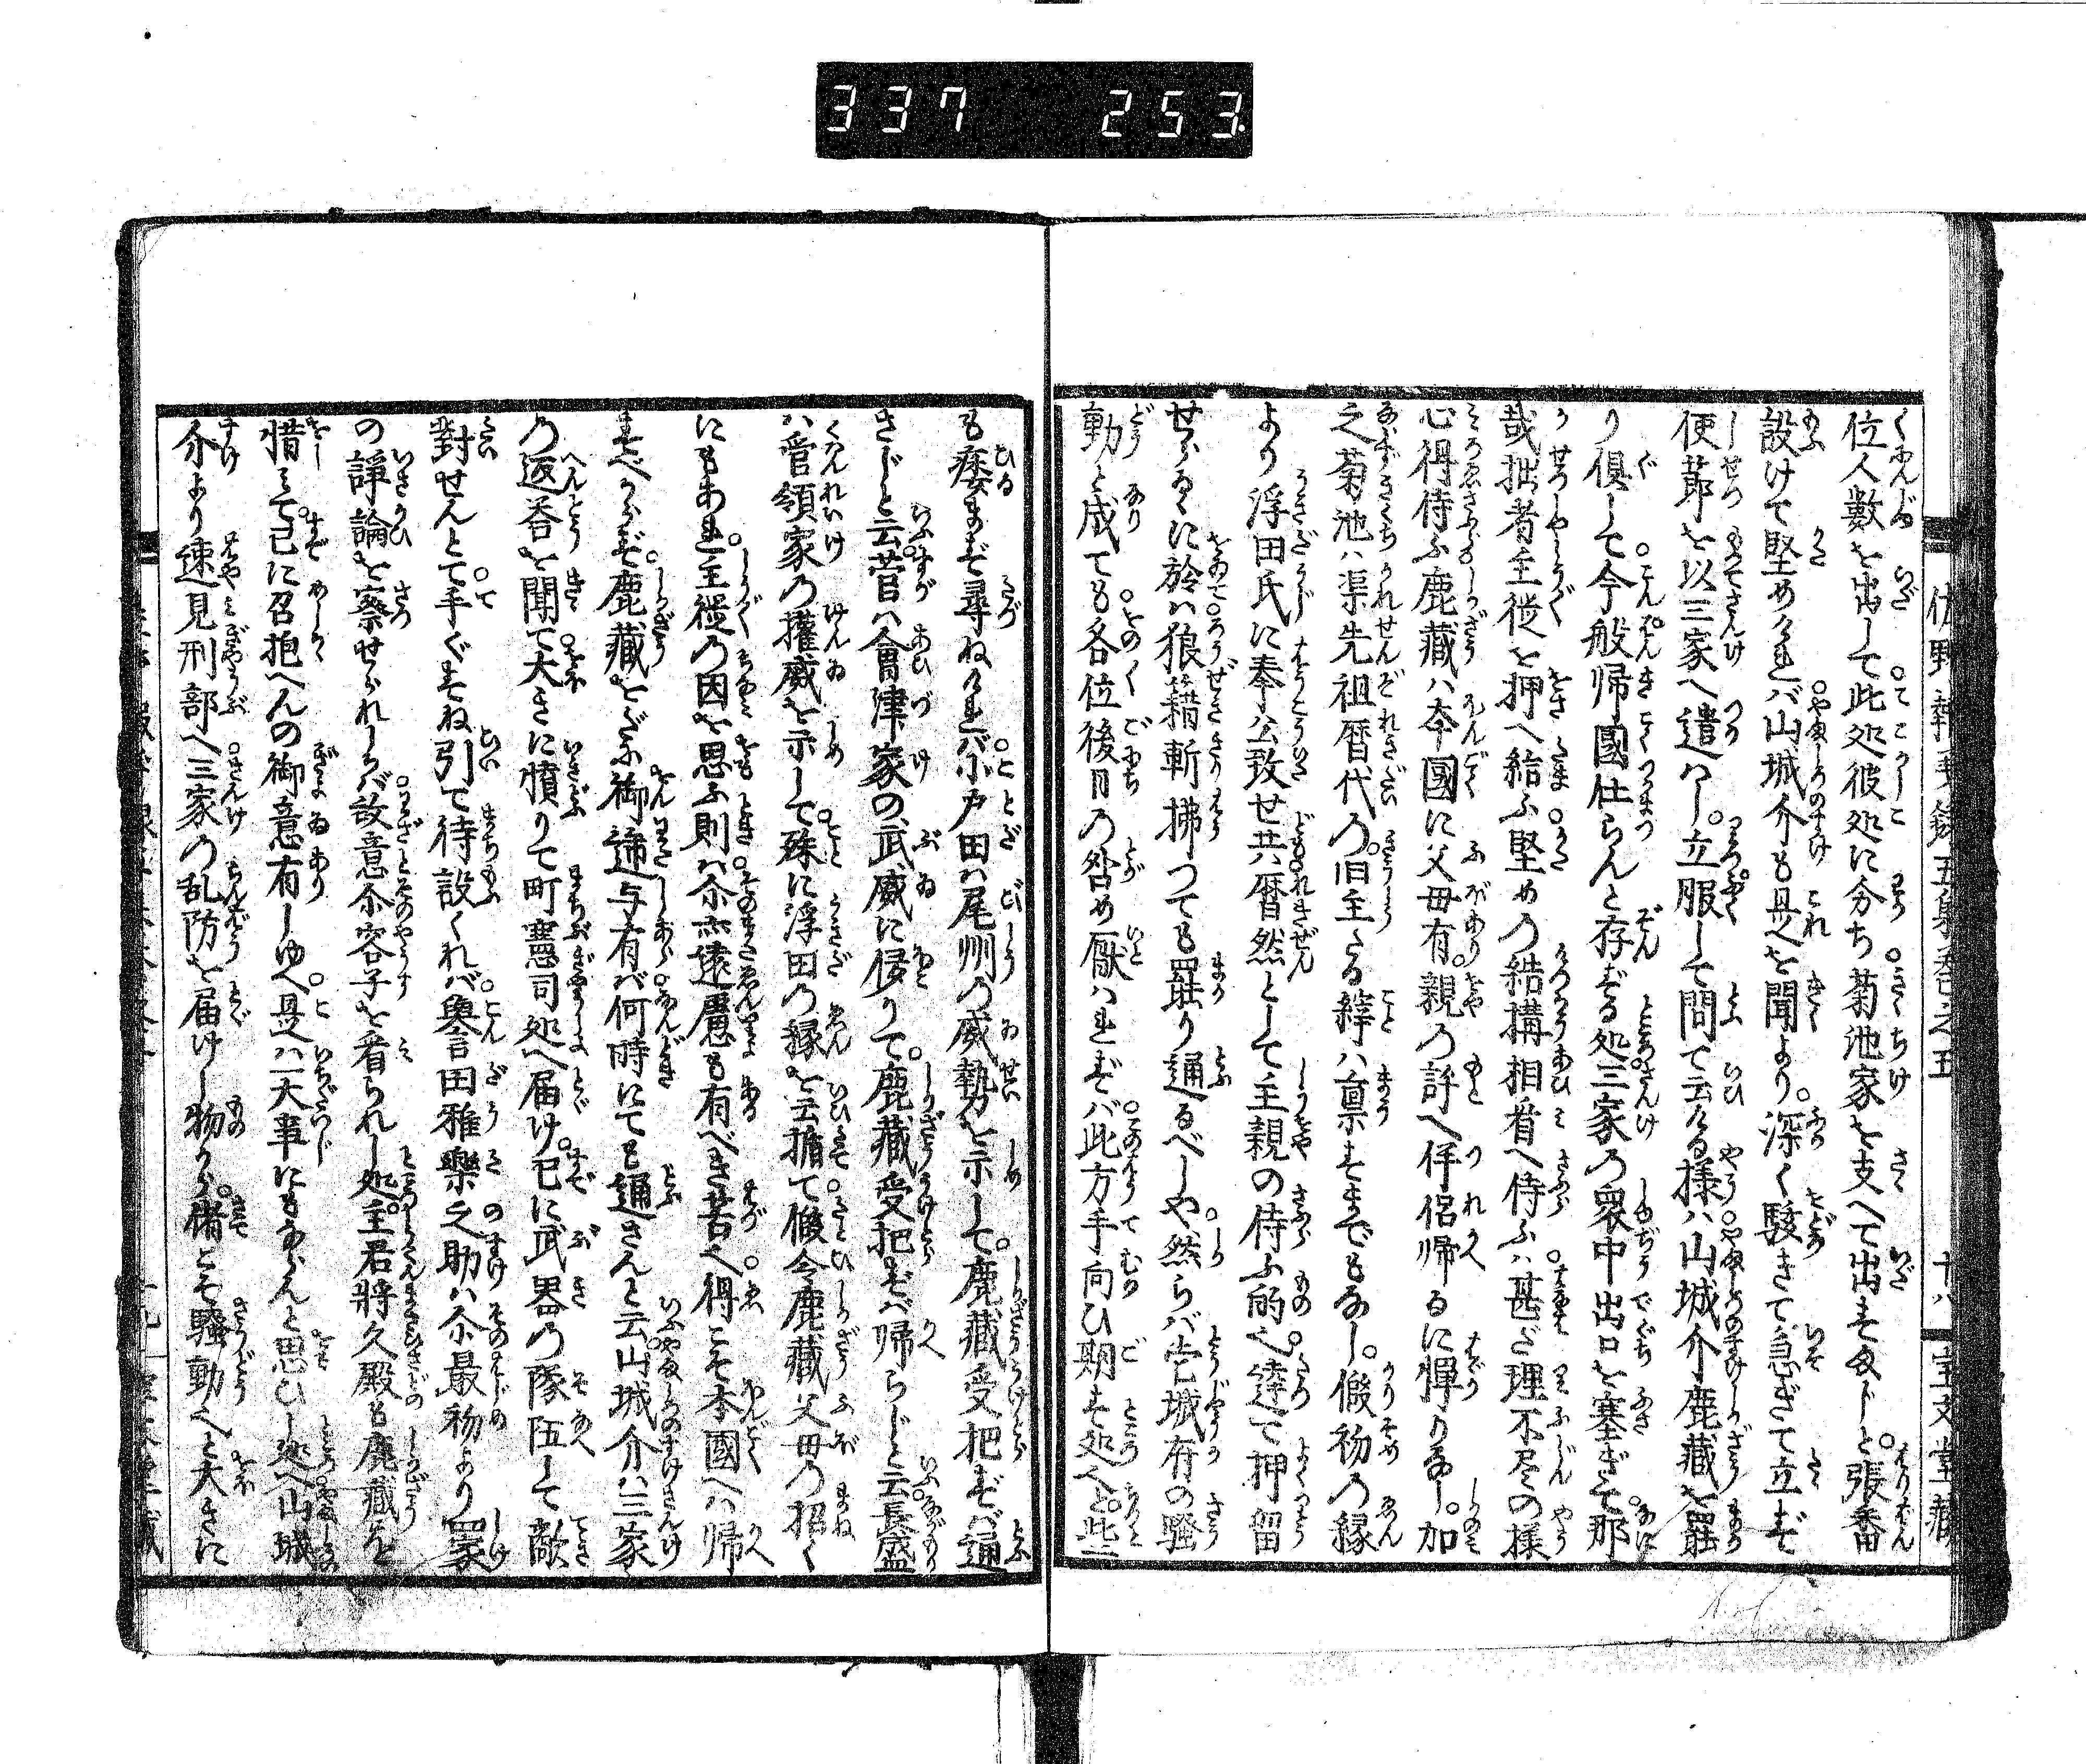 337 253
佐野報義録五集巻之五 十八 宝文堂蔵
位人數を出して此処彼処に分ち菊池家を支へて出さぬ〆と張番
設けて堅めけれバ山城介も是を聞より深く駭きて急ぎて立ず
使節を以三家へ遣ハし立服して問て云ける様ハ山城介鹿藏を罷
り倶して今般帰國仕らんと存ずる処三家の衆中出口を塞ぎて那
哉拙者主従を押へ結ふ堅めの結構相看へ侍ふハ甚ざ理不尽の様
心得侍ふ鹿藏ハ夲國に父母有親の許へ伴侶帰るに憚りなし加
之菊池ハ渠先祖暦代の旧主たる縡ハ禀すまでもなし假初の縁
より浮田氏に奉公致せ共暦然として主親の侍ふ的へ達て押留
せらるゝに於ハ狼籍斬拂つても罷り通るべしや然らバ當城府の騒
動と成ても各位後日の咎め厭ハれずバ此方手向ひ期す処へと些
も痿まず尋ねけれバ小戸田ハ尾州の威勢を示して鹿藏受把ずバ通
さじと云菅ハ會津家の武威に侵りて鹿藏受把ずバ帰らじと云長盛
ハ管領家の權威を示して殊に浮田の縁を云擔て假令鹿藏父母の招く
にもあれ主從の因を思ふ則ハ尒杰遠慮も有べき苦へ得こそ夲國へハ帰
すべからず鹿藏をだに御遞与有バ何時にても通さんと云山城介ハ三家
の返荅を聞て大きに憤りて町憲司処へ届け已に武器の隊伍して敵
對せんとて手ぐすね引て待設くれバ輿言田雅樂之助ハ尒最初より冢
の諍論を察せられしかバ故意尒容子を看られし処主君將久殿も鹿藏を
惜ミて已に召抱へんの御意有しゆへ是ハ一大事にもならんと思ひし処へ山城
介より速見刑部へ三家の乱防を届けし物から備こそ騒動へと大きに